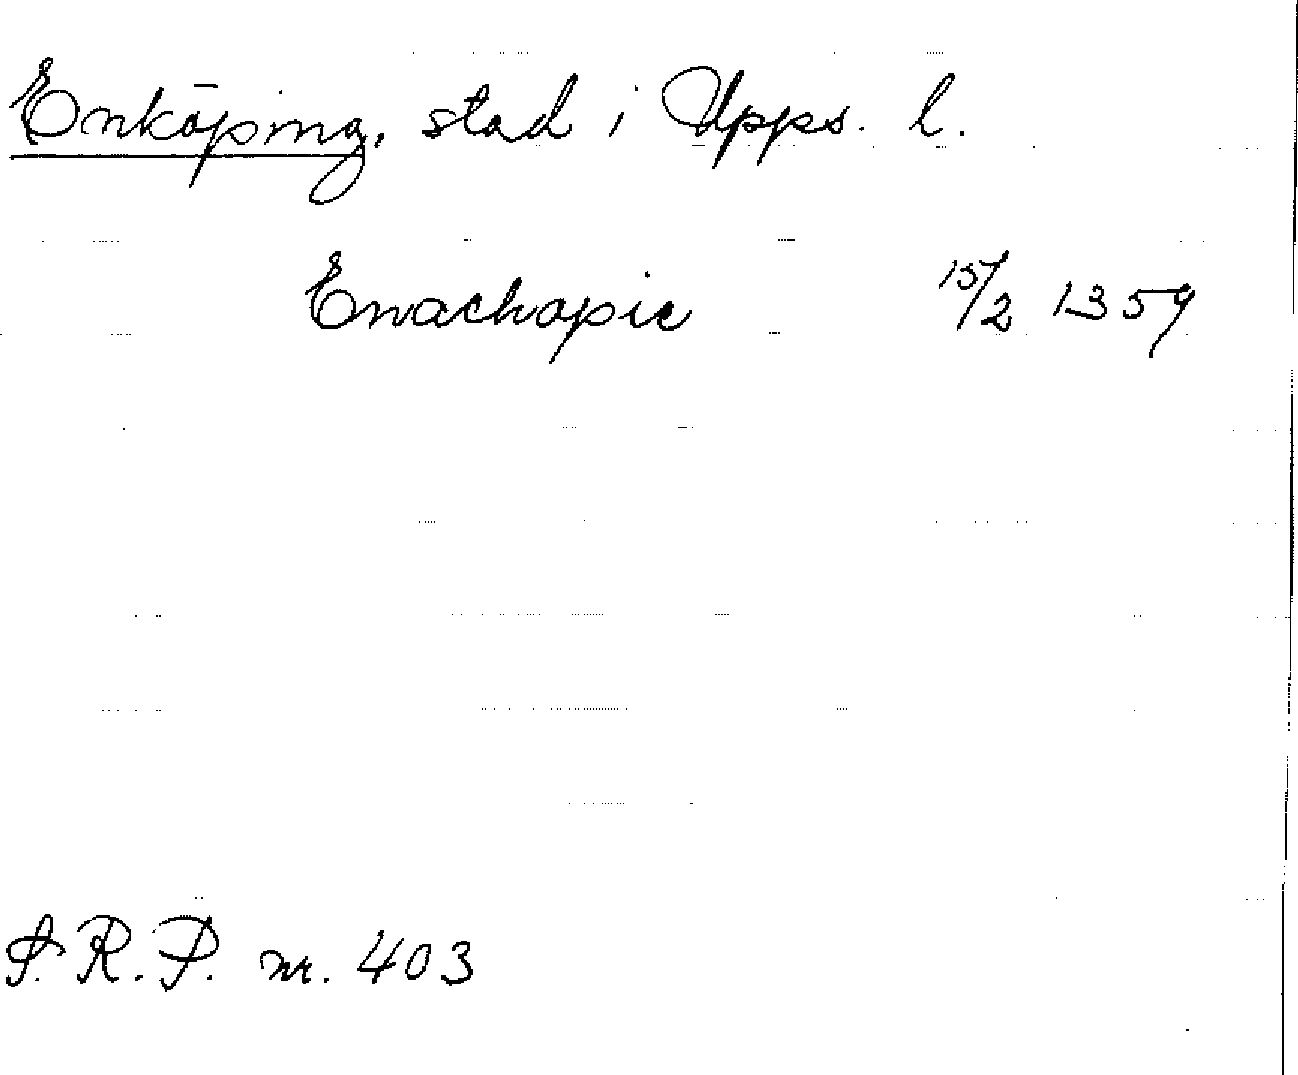 Enköping, stad i Upps. l.
Enachopie 15/2 1359
S.R.P. nr. 403